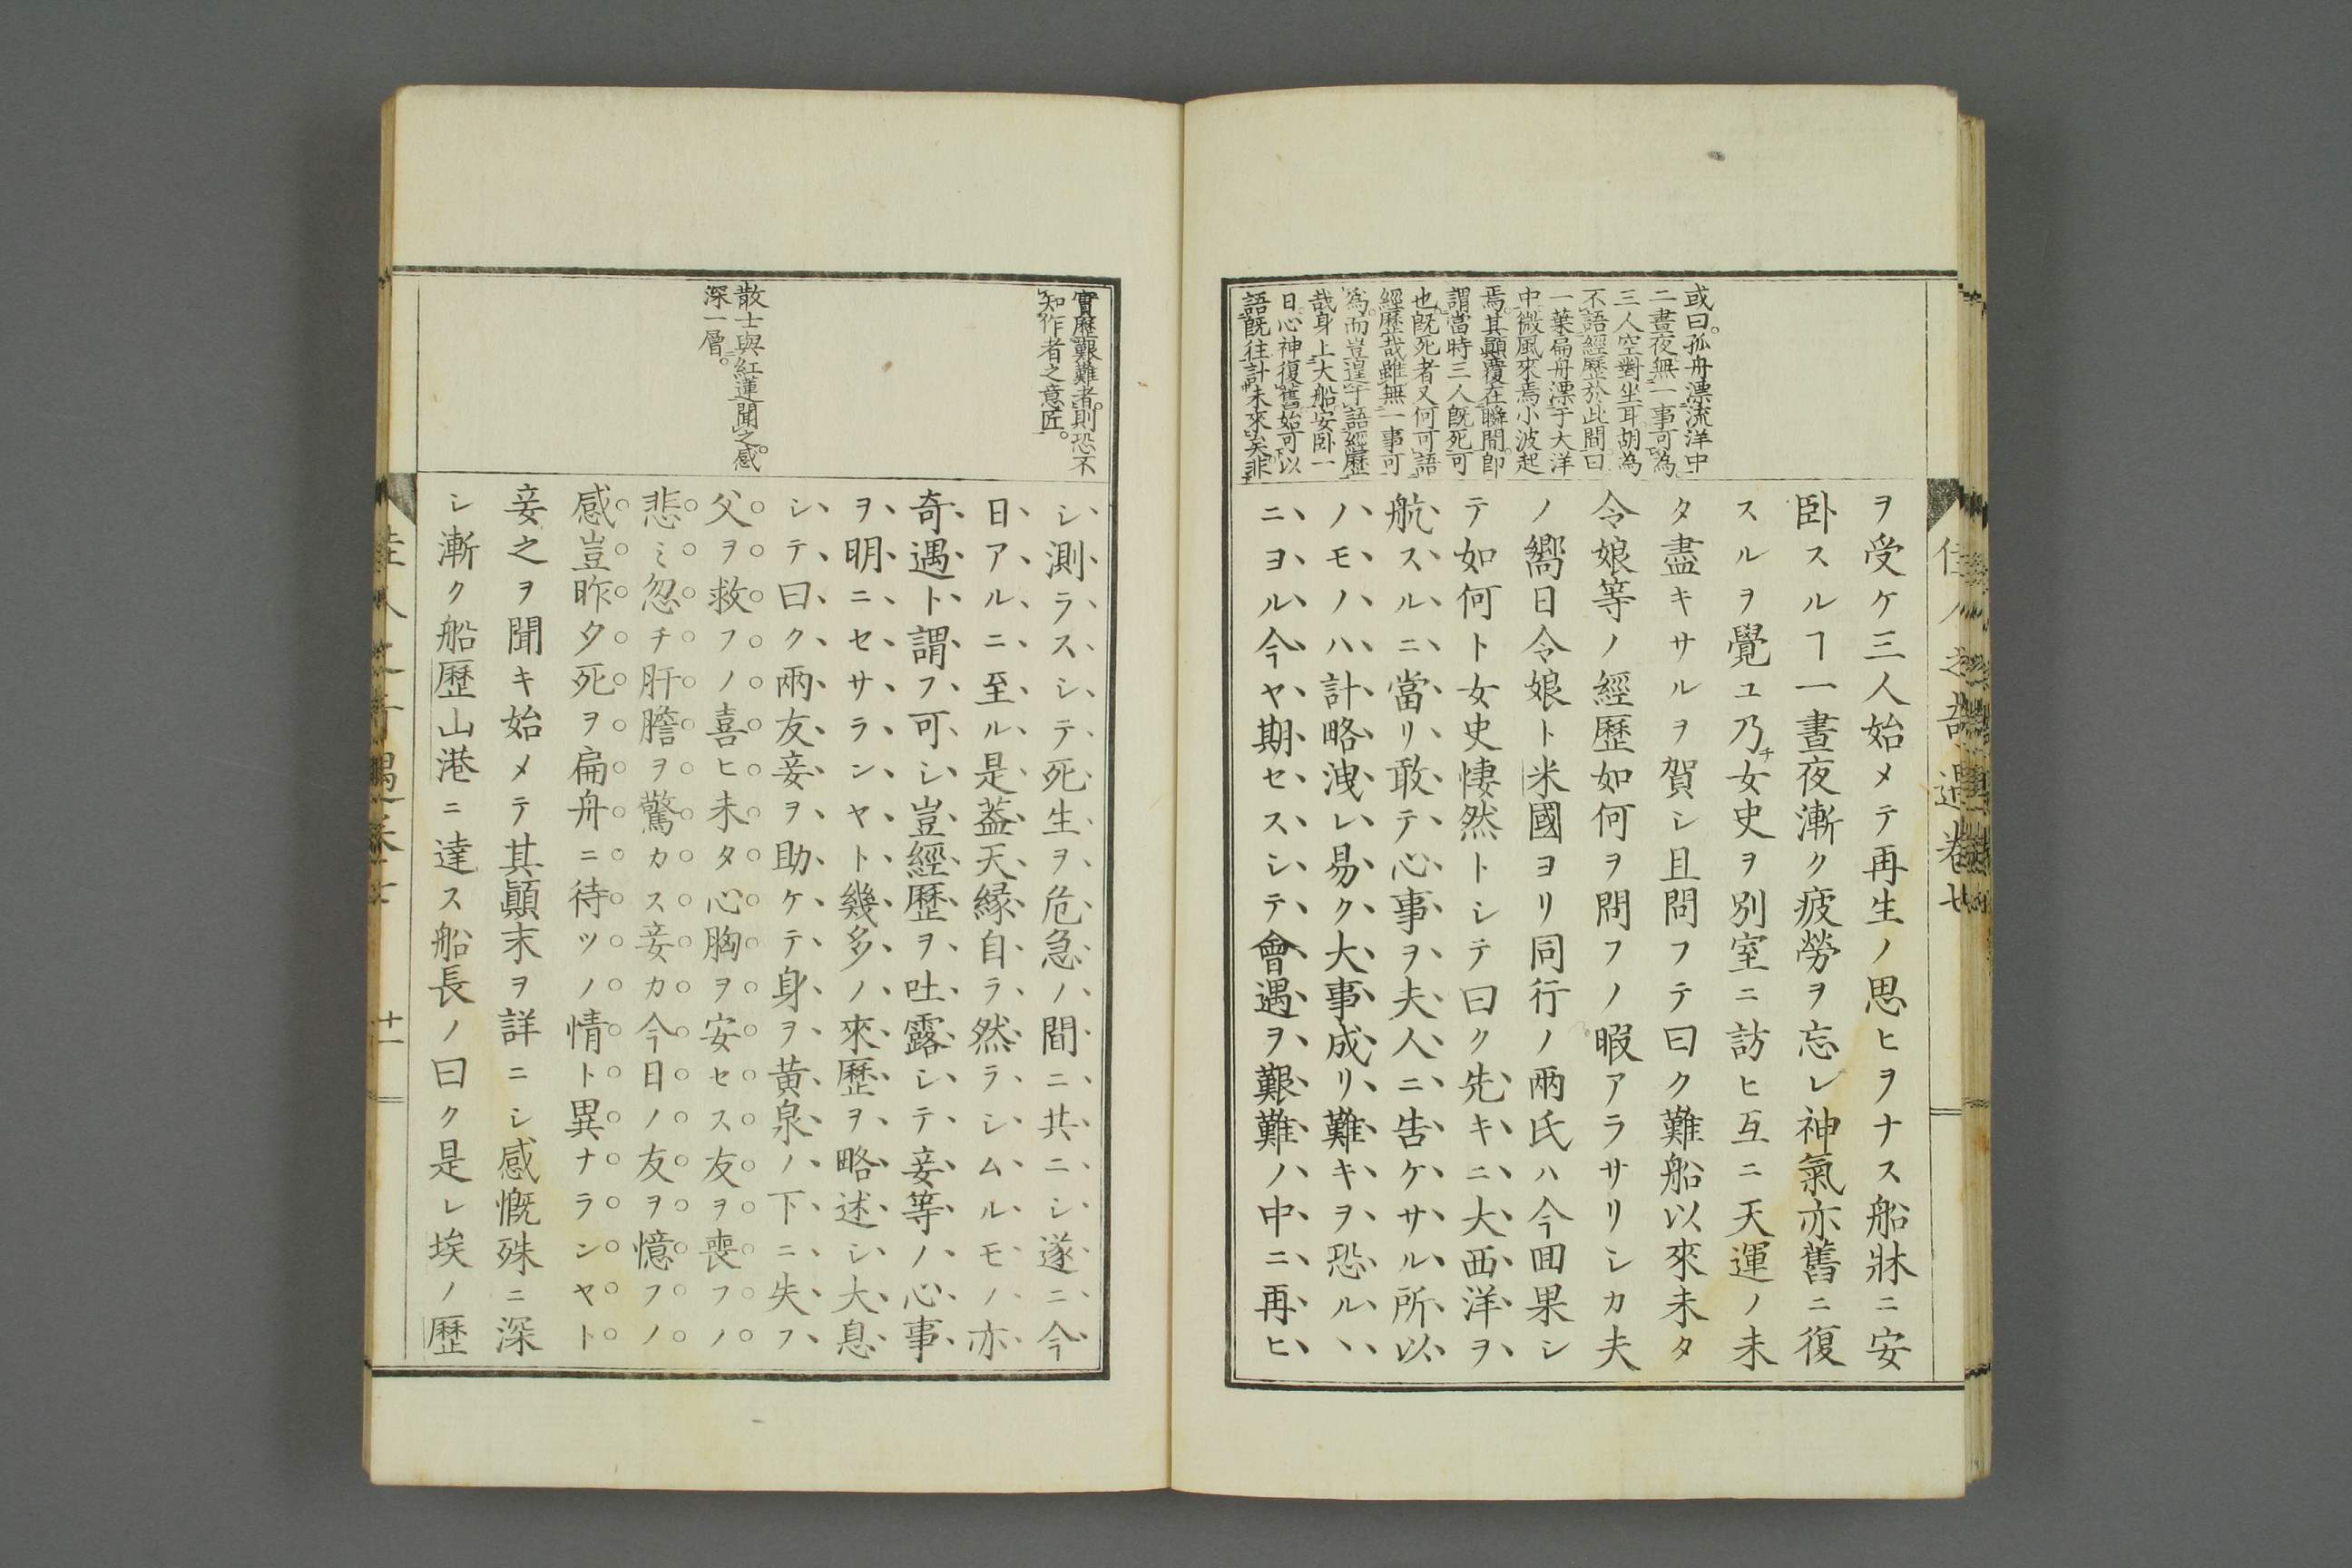 佳人之奇遇卷七
或曰。孤舟漂流洋中
二晝夜。無一事可為
三人空對坐耳。胡為
不語經歷於此間。曰
一葉扁舟漂于大洋
中。微風來焉小波起
焉。其顚覆在瞬間。卽
謂當時三人既死可
也。既死者又何可語
經歷哉。雖無一事可
為。而豈遑于語經歷
哉。身上大船安卧一
日。心神復舊始可以
語既往計未來矣。非
ヲ受ケ三人始メテ再生ノ思ヒヲナス船牀ニ安
卧スルヿ一晝夜漸ク疲勞ヲ忘レ神氣亦舊ニ復
スルヲ覺ユ乃チ女史ヲ別室ニ訪ヒ互ニ天運ノ未
タ盡キサルヲ賀シ且問フテ曰ク難船以來未タ
令娘等ノ經歷如何ヲ問フノ暇アラサリシカ夫
ノ嚮日令娘ト米國ヨリ同行ノ兩氏ハ今囬果シ
テ如何ト女史悽然トシテ曰ク先キニ大西洋ヲ
航スルニ當リ敢テ心事ヲ夫人ニ告ケサル所以
ノモノハ計略洩レ易ク大事成リ難キヲ恐ルヽ
ニヨル今ヤ期セスシテ會遇ヲ艱難ノ中ニ再ヒ
實歷艱難者。則恐不
知作者之意匠。
散士與紅蓮聞之。感
深一層。
シ測ラスシテ死生ヲ危急ノ間ニ共ニシ遂ニ今
日アルニ至ル是蓋天縁自ラ然ラシムルモノ亦
奇遇ト謂フ可シ豈經歷ヲ吐露シテ妾等ノ心事
ヲ明ニセサランヤト幾多ノ來歷ヲ略述シ大息
シテ曰ク兩友妾ヲ助ケテ身ヲ黄泉ノ下ニ失フ
父ヲ救フノ喜ヒ未タ心胸ヲ安セス友ヲ喪フノ
悲ミ忽チ肝膽ヲ驚カス妾カ今日ノ友ヲ憶フノ
感豈昨夕死ヲ扁舟ニ待ツノ情ト異ナランヤト
妾之ヲ聞キ始メテ其顚末ヲ詳ニシ感慨殊ニ深
シ漸ク船歷山港ニ達ス船長ノ曰ク是レ埃ノ歷
佳人之奇遇卷七 十一